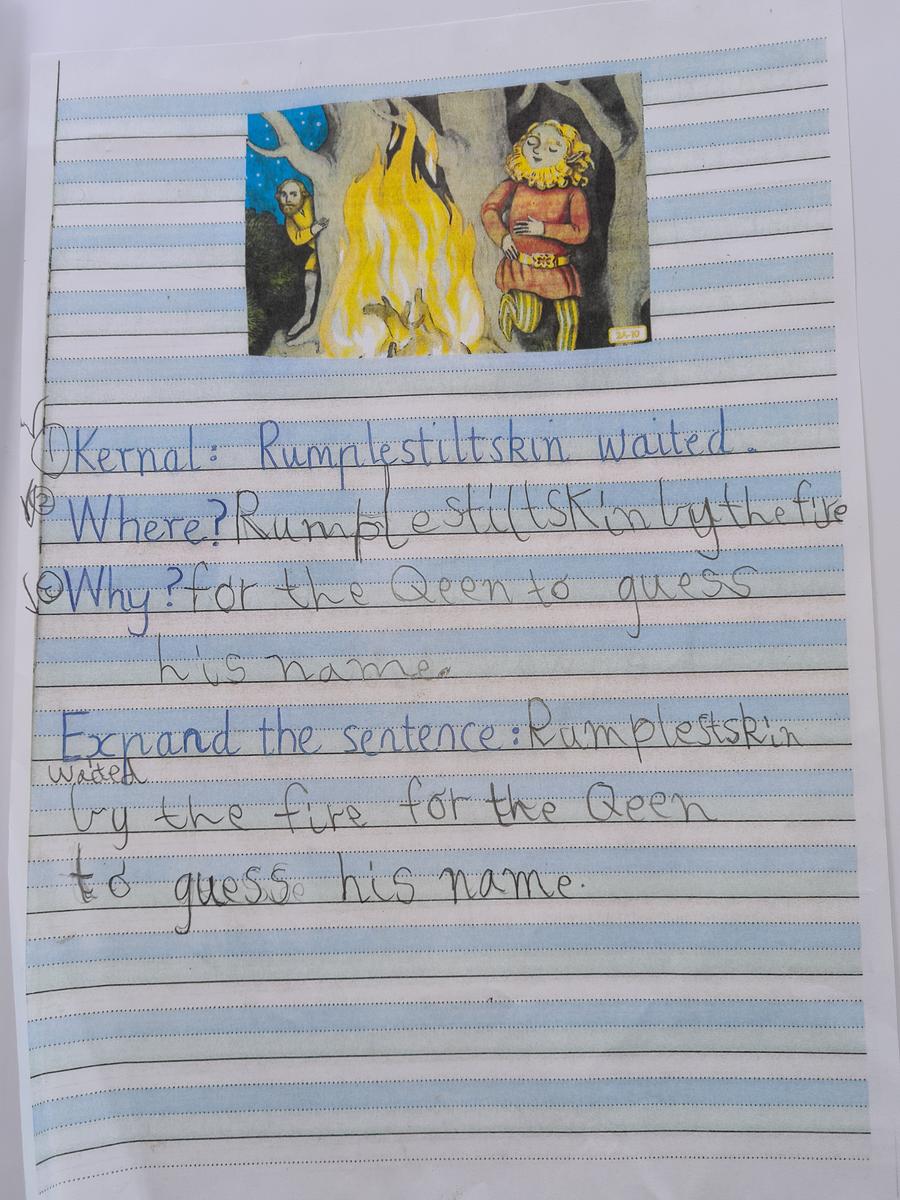 2A-10
① Kernal: Rumplestiltskin waited.
② Where? RumplestiltSKin by the fire
③ Why? for the Qeen to guess
his name.
Expand the sentence: Rumplestskin
waited
by the fire for the Qeen
to guess his name.